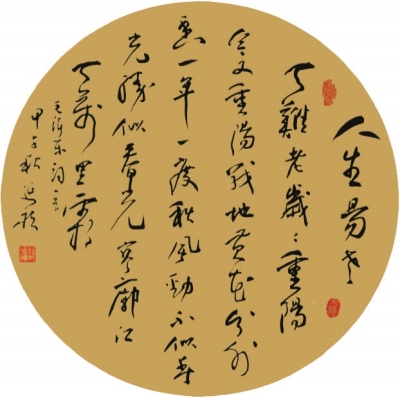 人生易老
天難老歲々重陽
今又重陽戰地黃花分外
香一年一度秋風勁不似春
光勝似春光寥廓江
天萬里霜
毛澤东詞
甲午秋